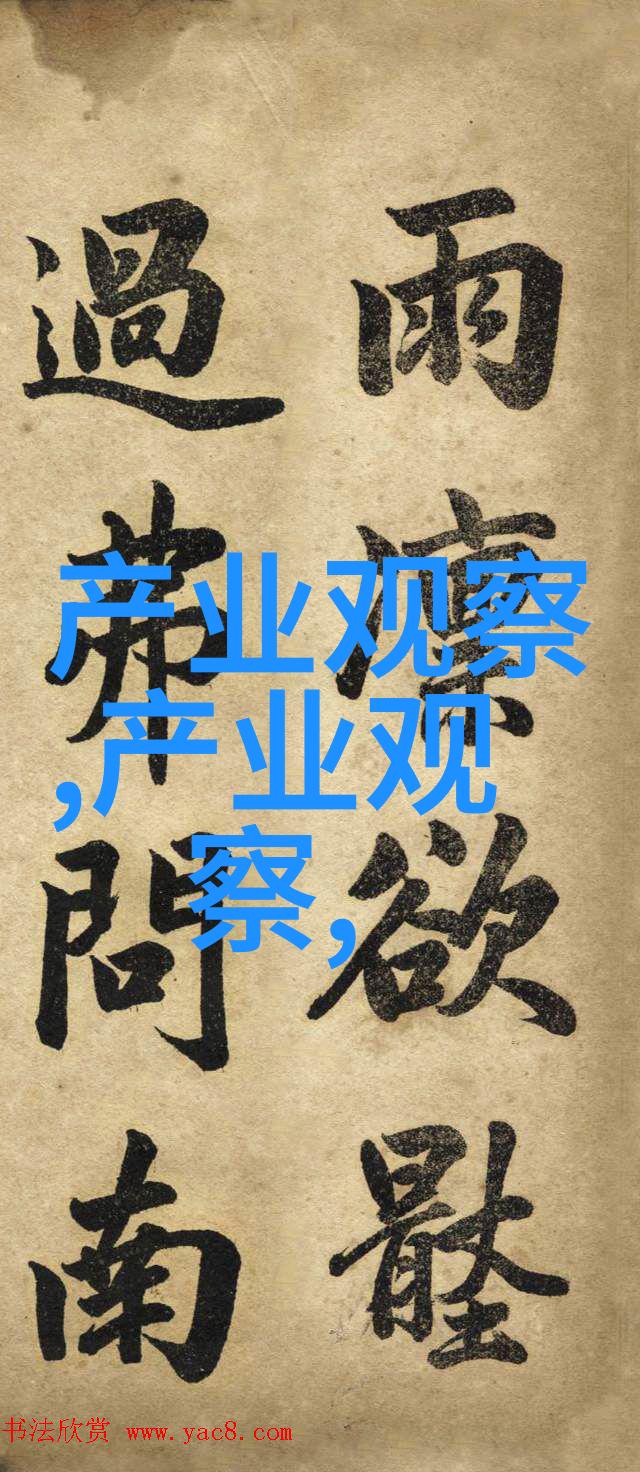 雨欲
過茀問南
产业观察
,产业观
察,
书法欣赏 www.yac8.com